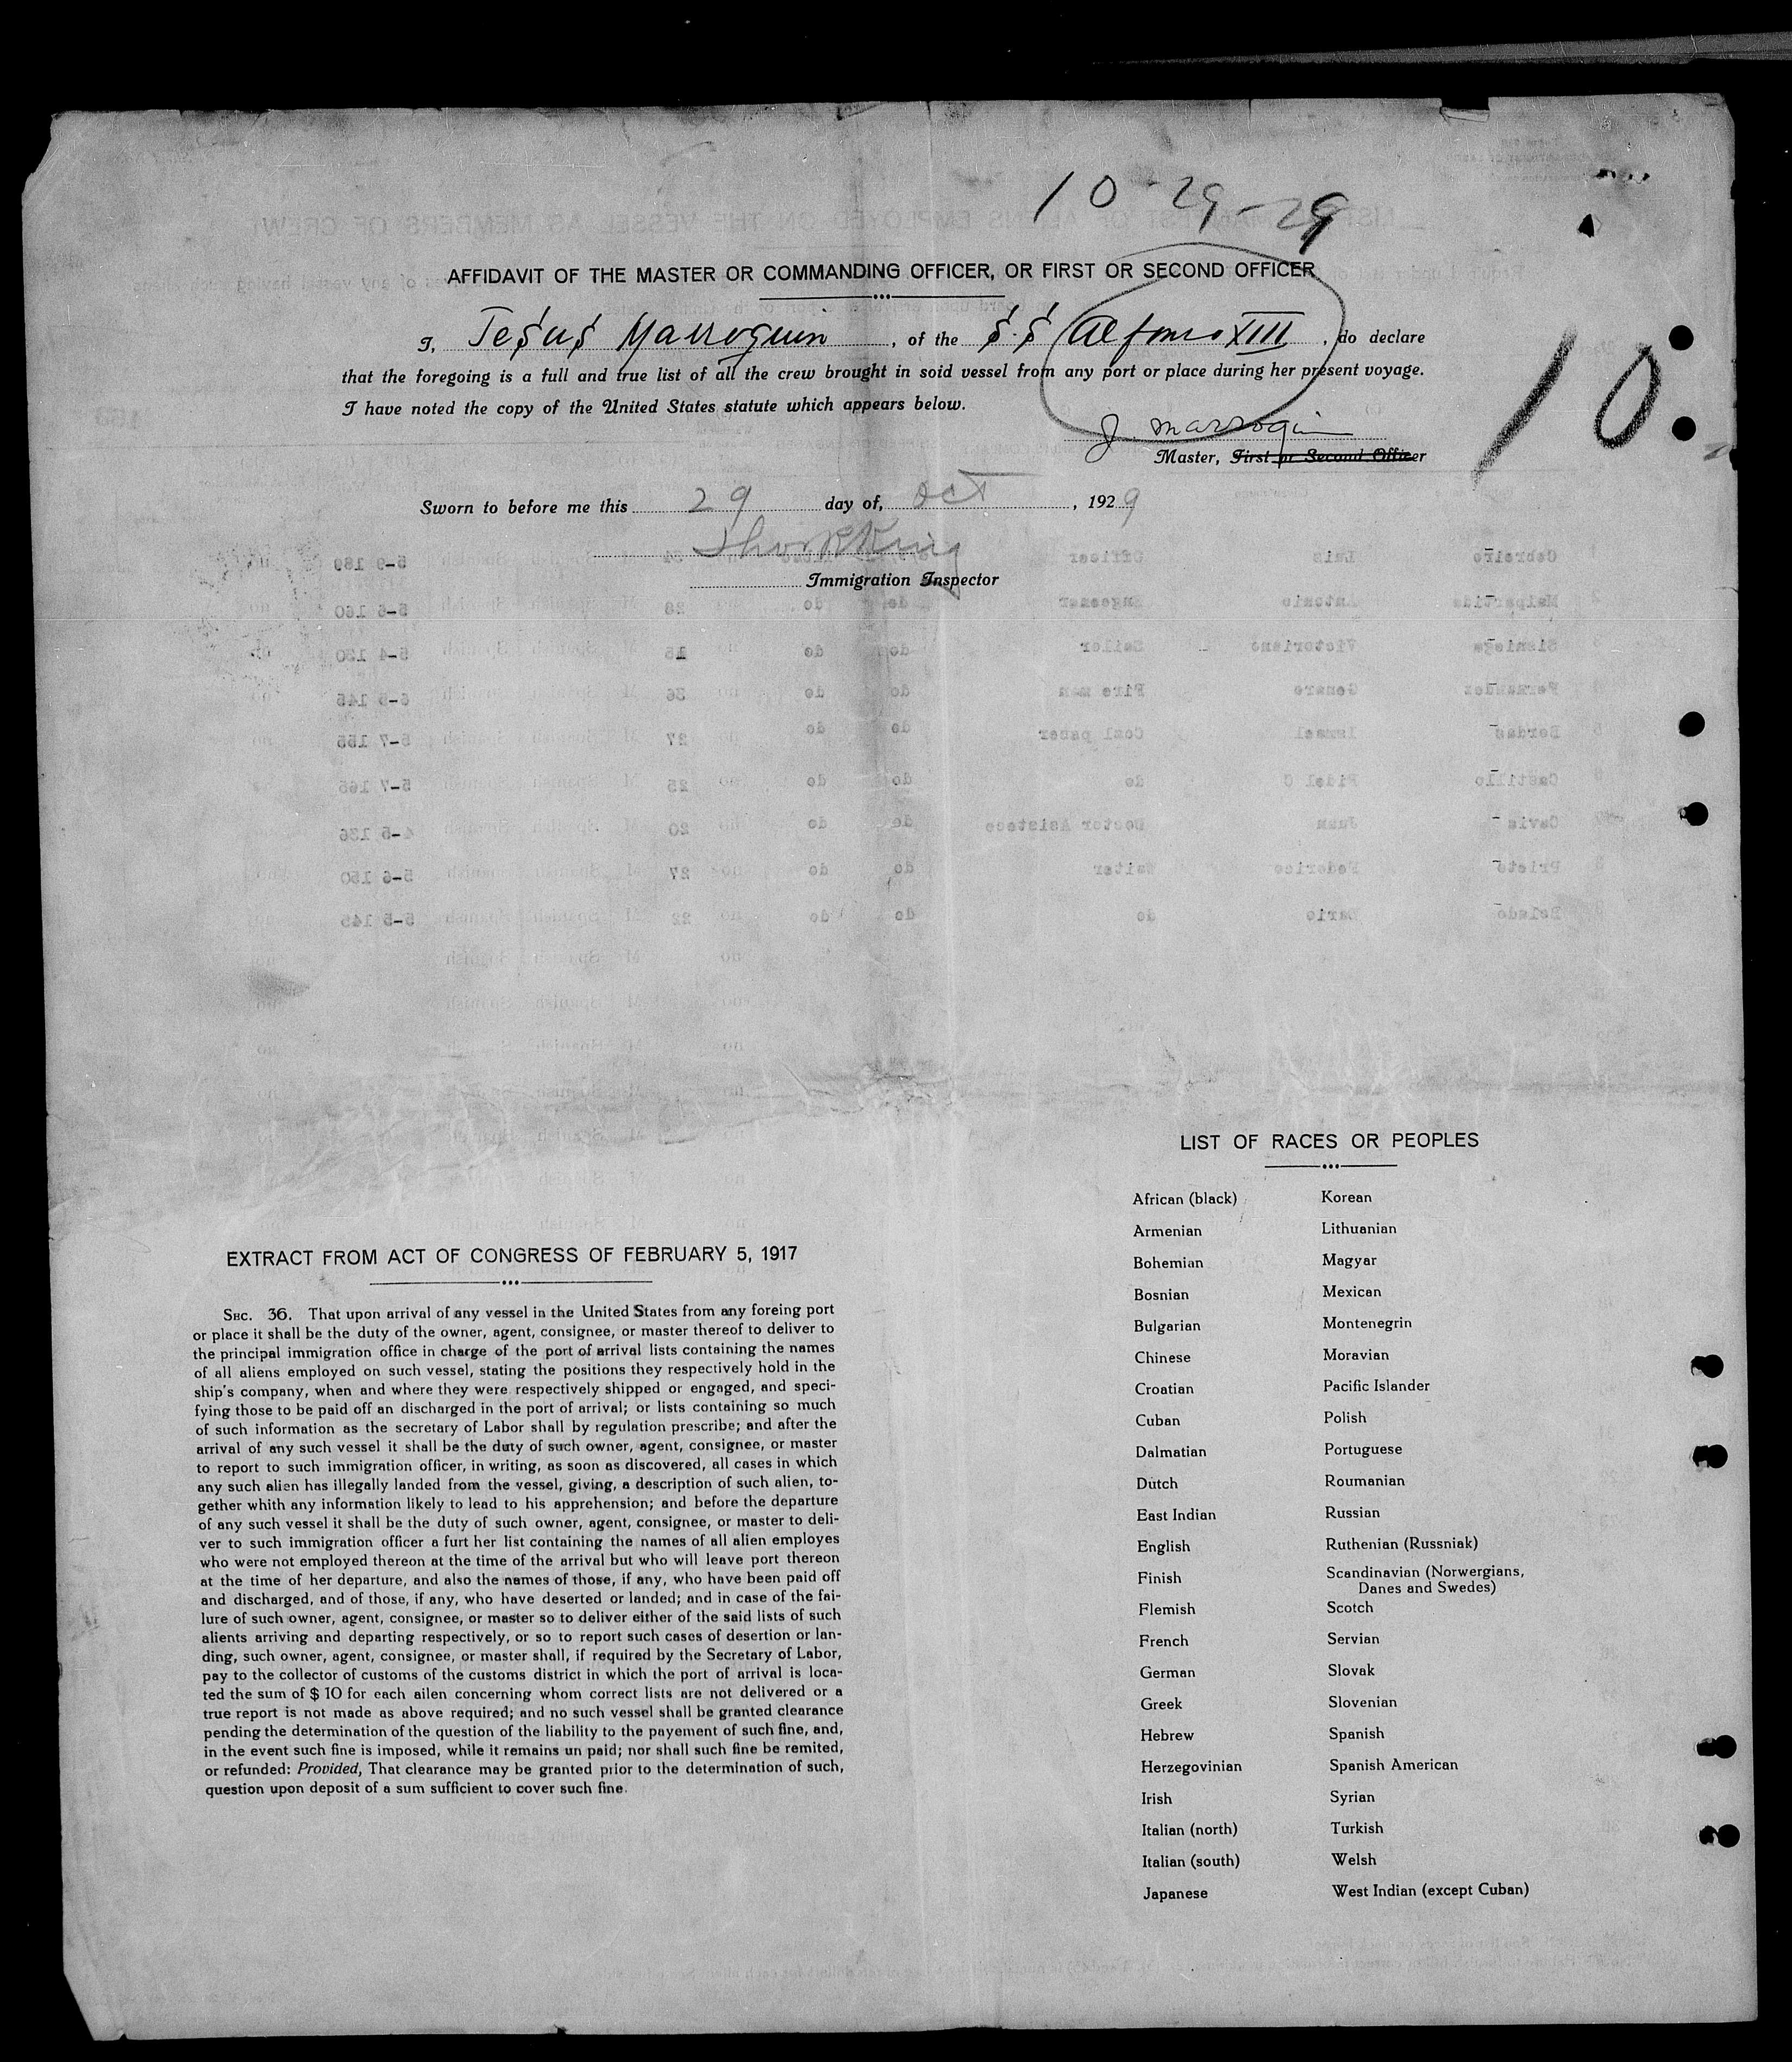 10-29-29
AFFIDAVIT OF THE MASTER OR COMMANDING OFFICER, OR FIRST OR SECOND OFFICER
I, Jesus Marroquin, of the S.S Alfonso XIII, do declare
that the foregoing is a full and true list of all the crew brought in soid vessel from any port or place during her present voyage.
I have noted the copy of the United States statute which appears below.
10
J Marroquin
Master, First or Second Officer
Sworn to before me this 29 day of, Oct, 1929
King
Immigration Inspector
LIST OF RACES OR PEOPLES
African (black) Korean
Armenian Lithuanian
Bohemian Magyar
Bosnian Mexican
Bulgarian Montenegrin
Chinese Moravian
Croatian Pacific Islander
Cuban Polish
Dalmatian Portuguese
Dutch Roumanian
East Indian Russian
English Ruthenian (Russniak)
Finish Scandinavian (Norwergians,
Danes and Swedes)
Flemish Scotch
French Servian
German Slovak
Greek Slovenian
Hebrew Spanish
Herzegovinian Spanish American
Irish Syrian
Italian (north) Turkish
Italian (south) Welsh
Japanese West Indian (except Cuban)
EXTRACT FROM ACT OF CONGRESS OF FEBRUARY 5, 1917
SEC. 36. That upon arrival of any vessel in the United States from any foreing port
or place it shall be the duty of the owner, agent, consignee, or master thereof to deliver to
the principal immigration office in charge of the port of arrival lists containing the names
of all aliens employed on such vessel, stating the positions they respectively hold in the
ship's company, when and where they were respectively shipped or engaged, and speci-
fying those to be paid off an discharged in the port of arrival; or lists containing so much
of such information as the secretary of Labor shall by regulation prescribe; and after the
arrival of any such vessel it shall be the duty of such owner, agent, consignee, or master
to report to such immigration officer, in writing, as soon as discovered, all cases in which
any such alien has illegally landed from the vessel, giving, a description of such alien, to-
gether whith any information likely to lead to his apprehension; and before the departure
of any such vessel it shall be the duty of such owner, agent, consignee, or master to deli-
ver to such immigration officer a furt her list containing the names of all alien employes
who were not employed thereon at the time of the arrival but who will leave port thereon
at the time of her departure, and also the names of those, if any, who have been paid off
and discharged, and of those, if any, who have deserted or landed; and in case of the fai-
lure of such owner, agent, consignee, or master so to deliver either of the said lists of such
alients arriving and departing respectively, or so to report such cases of desertion or lan-
ding, such owner, agent, consignee, or master shall, if required by the Secretary of Labor,
pay to the collector of customs of the customs district in which the port of arrival is loca-
ted the sum of $ 10 for each ailen concerning whom correct lists are not delivered or a
true report is not made as above required; and no such vessel shall be granted clearance
pending the determination of the question of the liability to the payement of such fine, and,
in the event such fine is imposed, while it remains un paid; nor shall such fine be remited,
or refunded: Provided, That clearance may be granted prior to the determination of such,
question upon deposit of a sum sufficient to cover such fine.